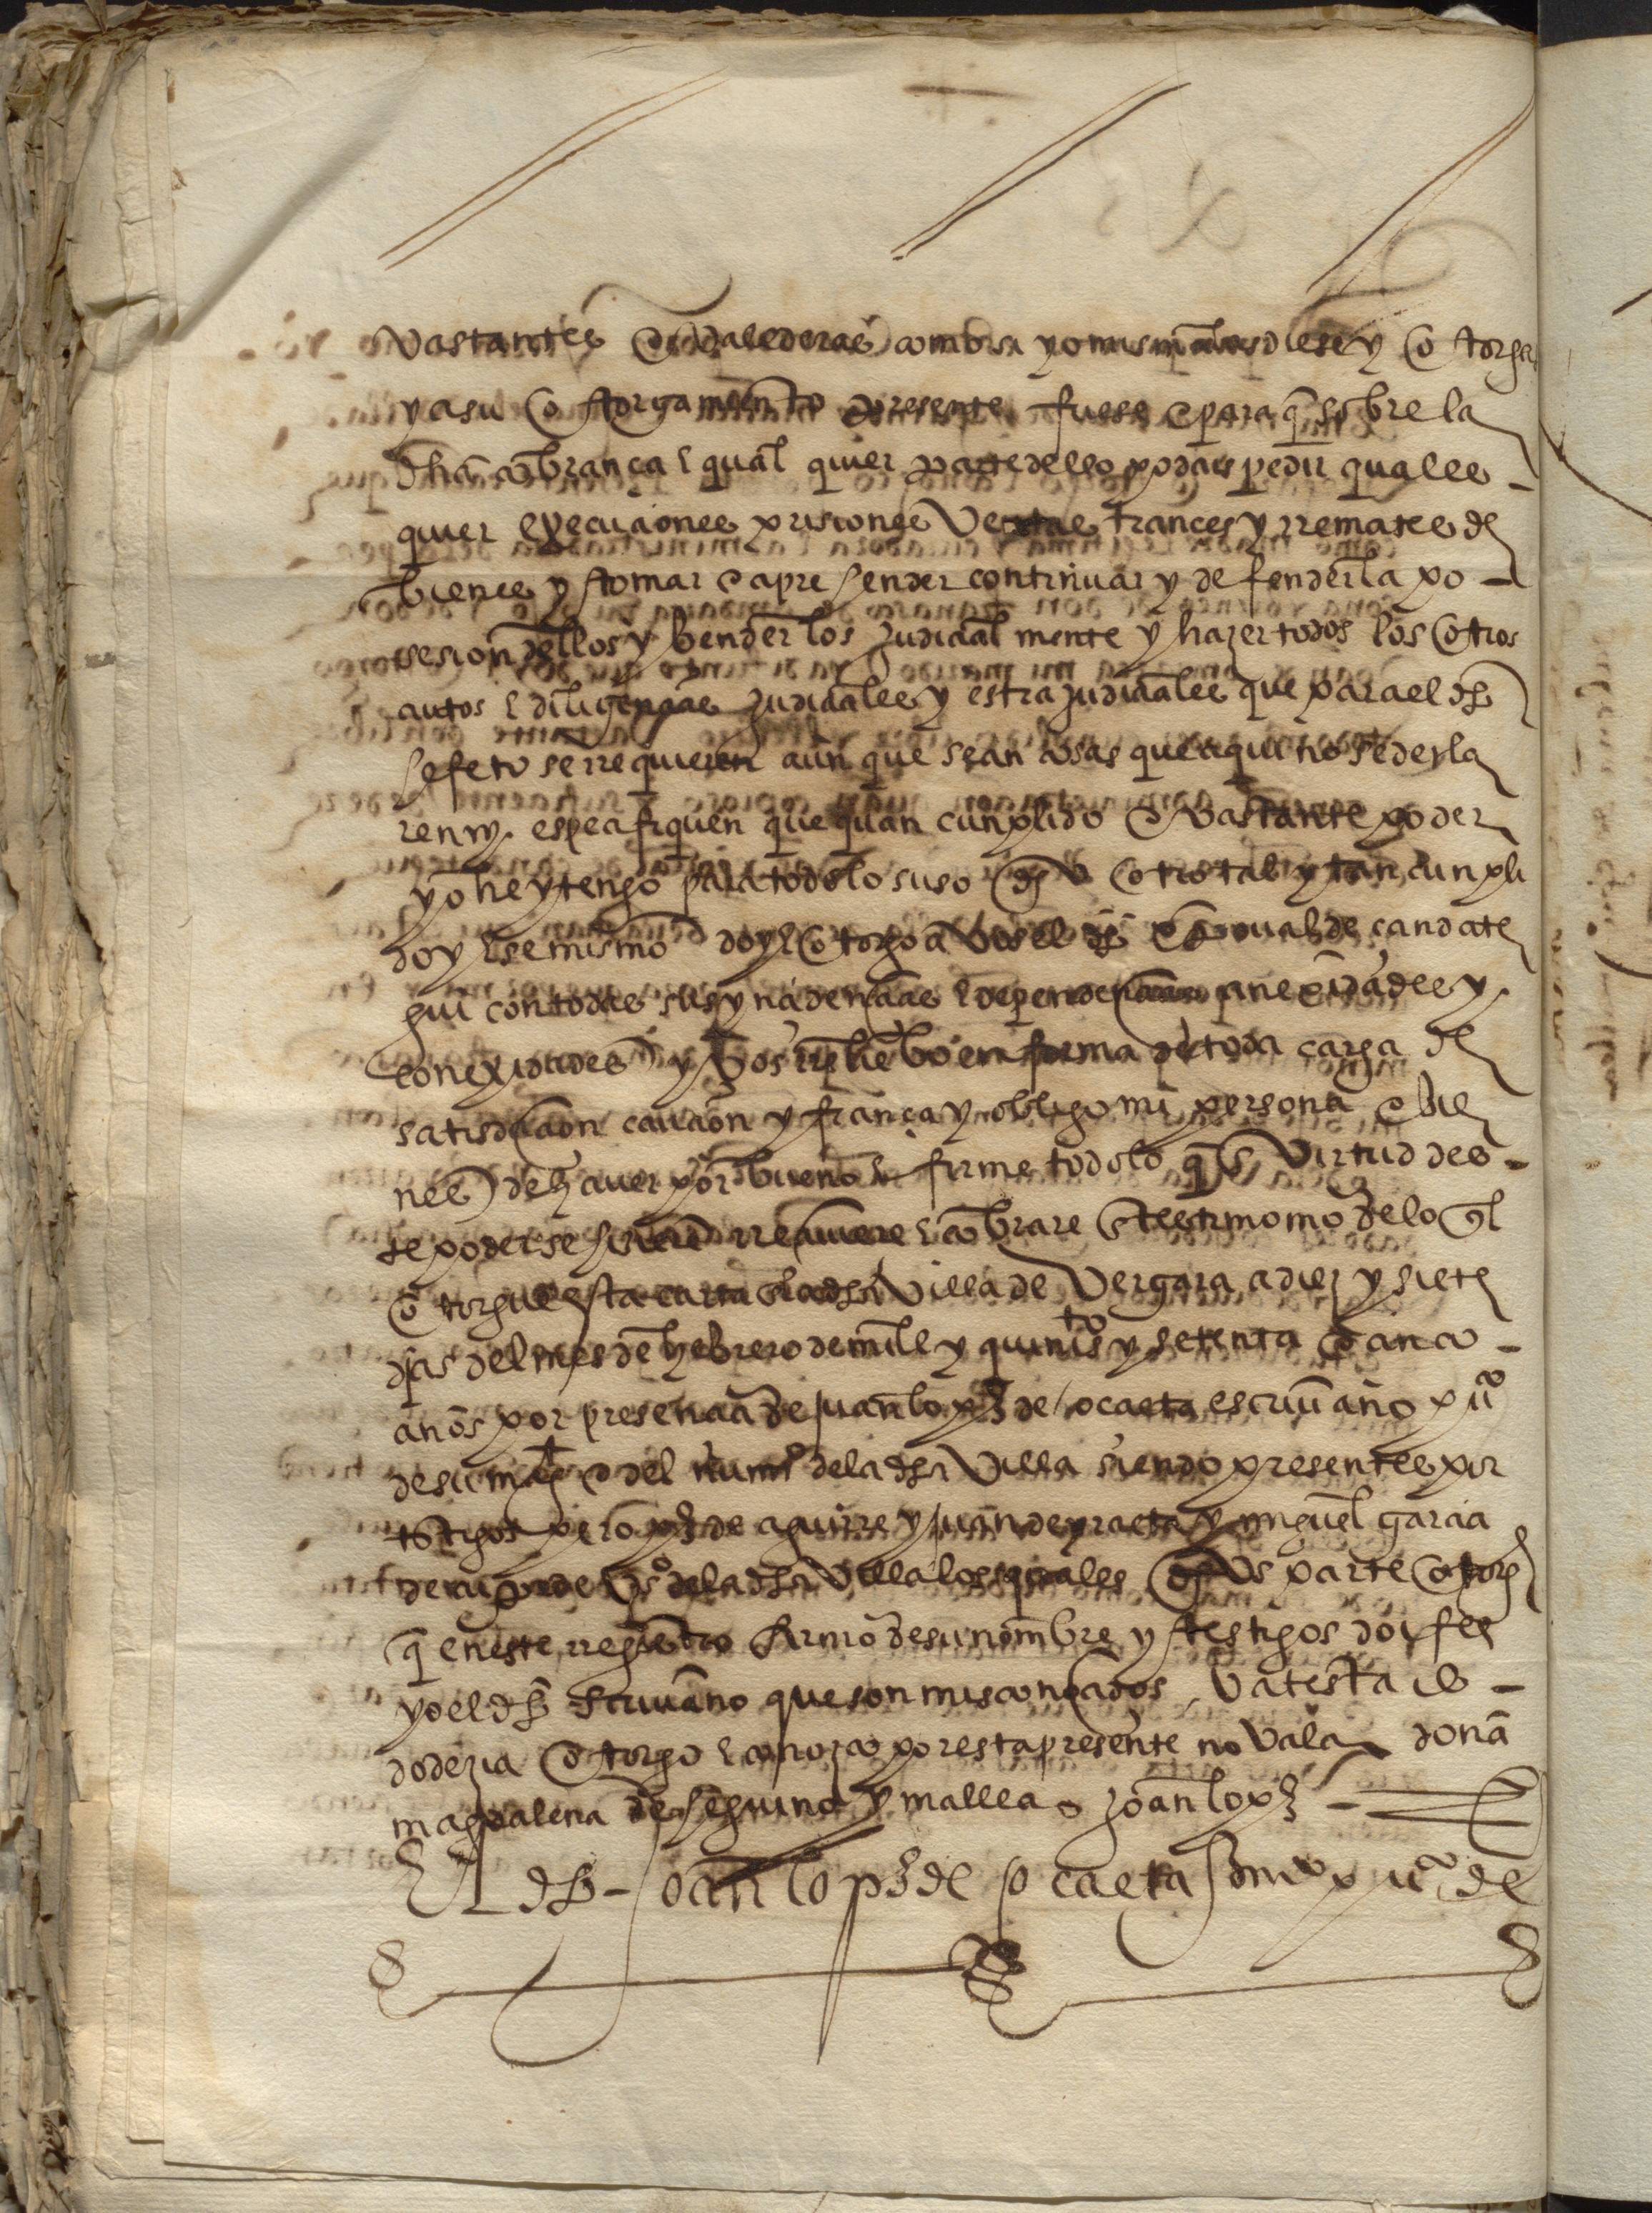 vastantes e valederas como si yo misma las diese y otorga
y a su otorgamiento presente fuese e para q̃ sobre la
dha cobrança e qual quier parte dello podais pedir quales
quier execuciones prisiones ventas trances y rremates de
bienes y tomar e aprehender continuar y defender la po
sesion dellos y benderlos judicial mente y hazer todos los otros
autos e diligencias judiciales y estrajudiciales que para el dho
efeto se rrequieren aun que sean cosas que aqui no se decla
ren ny especifiquen que quan cunplido e vastante poder
yo he y tengo para todo lo suso dho otro tal y tan cunpli
do y ese mismo doy e otorgo a vos el dho de çandate
gui con todas sus yncidencias e dependencias anexidades y
conexidades y vos rrelievo en forma de toda carga de
satisdacion caucion y fiança y obligo mi persona e bie
nes de haver por bueno e firme todo lo q̃ en virtud des
te poder se hiziere rreciviere e cobrare en testimonio de lo ql
otorgue esta carta en la dha villa de Vergara a diez y siete
dias del mes de hebrero de mill y quinios y setenta e cinco
años por presencia de juan lopz de ocaeta escrivano puco
de su magt e del numo de la dha villa siendo presentes por
testigos pero pz de aguirre y juan de yraeta y miguel garcia
de vos de la dha villa los quales e vs parte otorg
q̃ en este rregistro firmo de su nombre y testigos doi fee
yo el dho scrivano que son mis conoçidos va testa is
do dezia otorgo e conozco por esta presente no vala doña
magdalena de seguino y mallea joan lopz
El dho joan lopz de ocaeta puco de